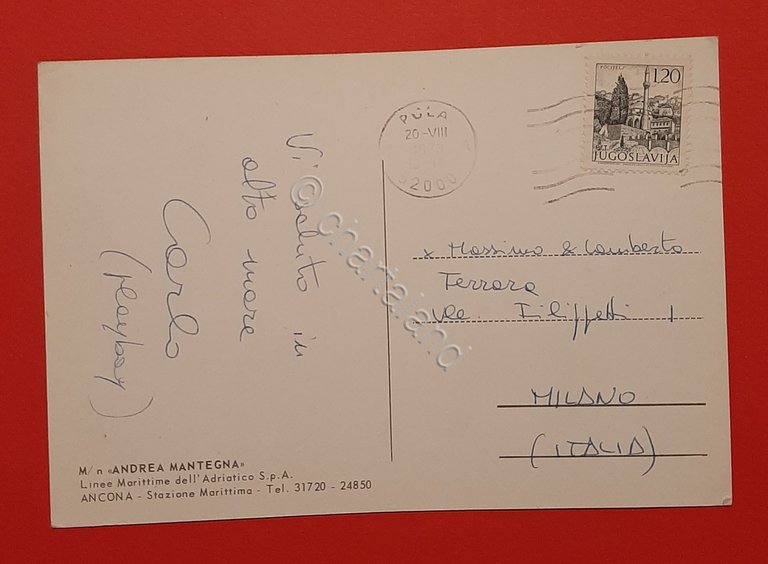 Vi saluto in
alto mare
Carlo
(playboy)
M/n «ANDREA MANTEGNA»
Linee Marittime dell'Adriatico S.p.A.
ANCONA - Stazione Marittima - Tel. 31720 - 24850
PULA
20-VIII
52000
POČITELJ
1.20
JUGOSLAVIJA
x Massimo & Lamberto
Ferrara
Vle. Filippetti 1
MILANO
(ITALIA)
© chartaland